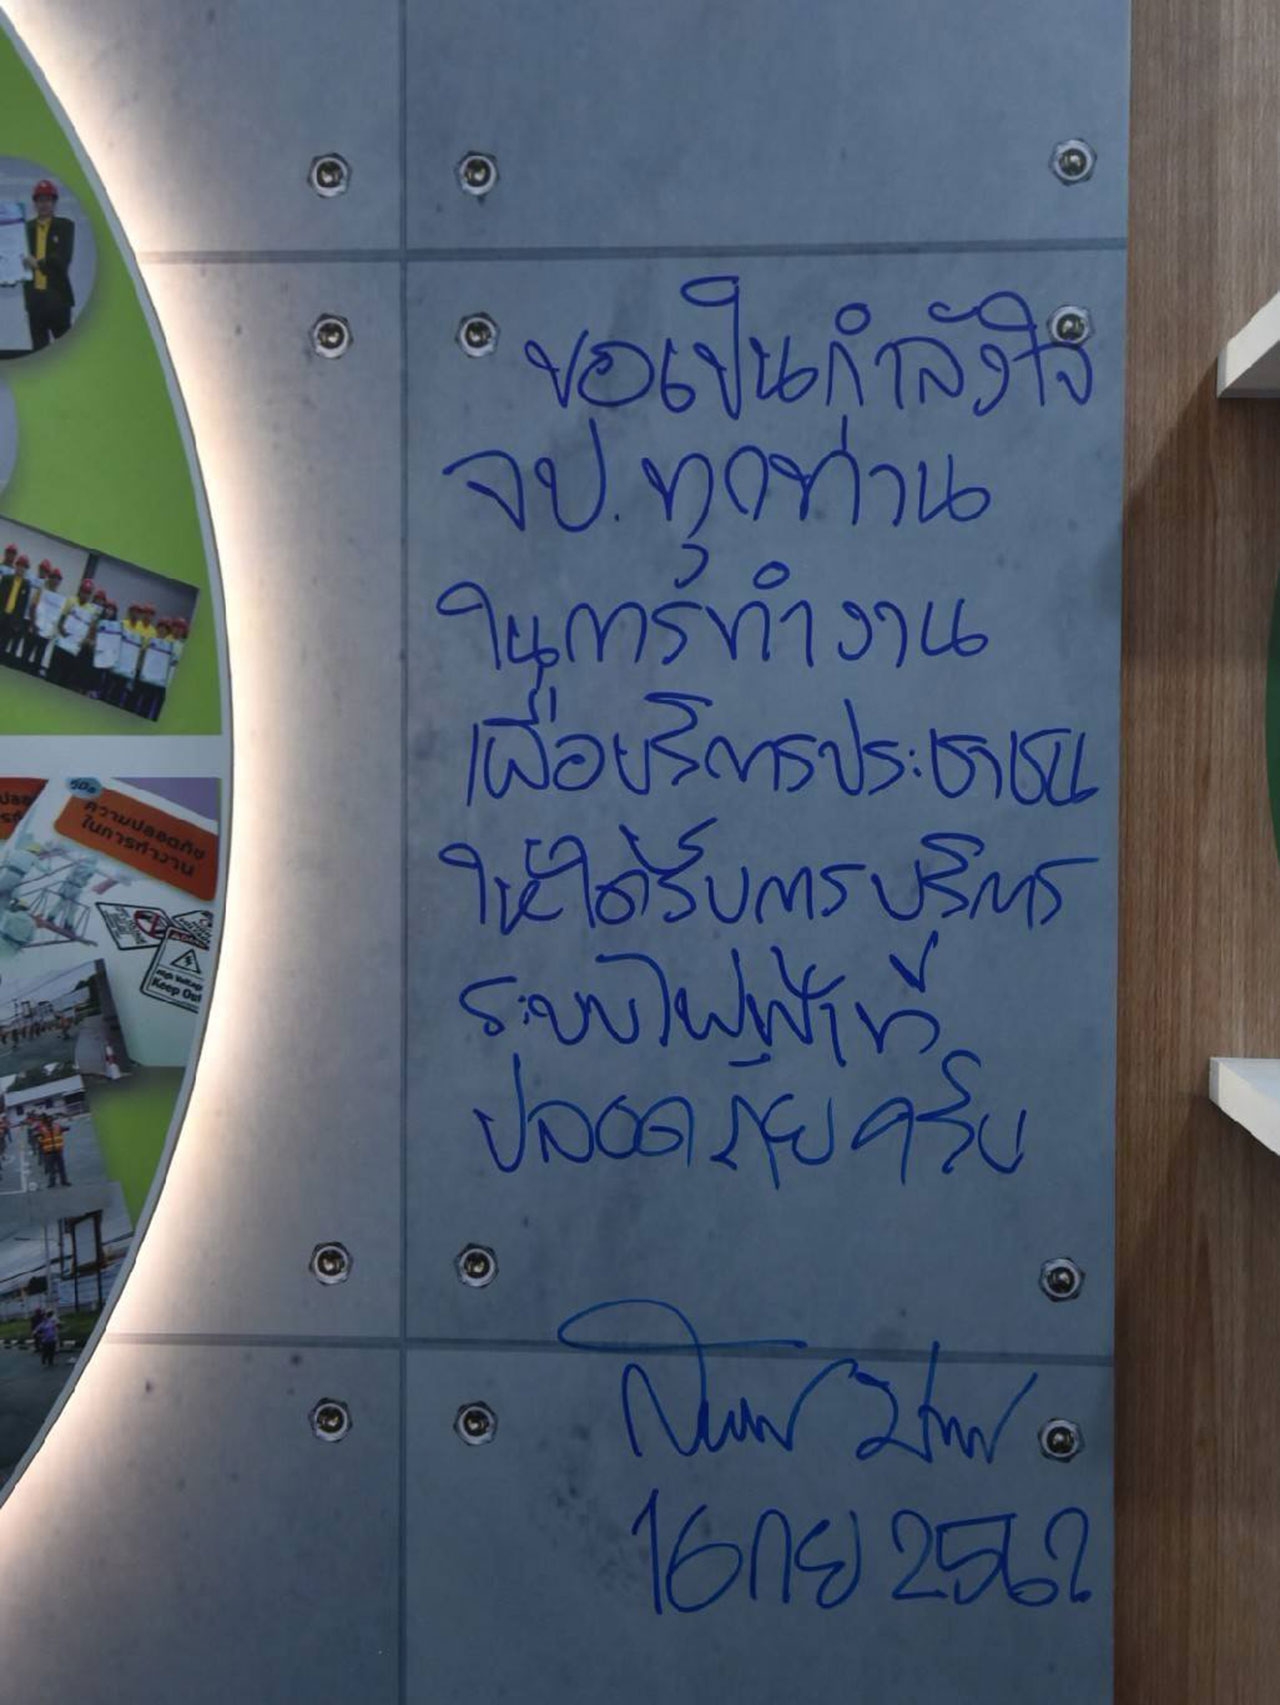 ขอเป็นกำลังใจ
จป. ทุกท่าน
ในการทำงาน
เพื่อบริการประชาชน
ให้ได้รับการบริการ
ระบบไฟฟ้าที่
ปลอดภัยครับ
16 กย 2562
ความปลอดภัย
ในการทำงาน
High Voltage
Keep Out